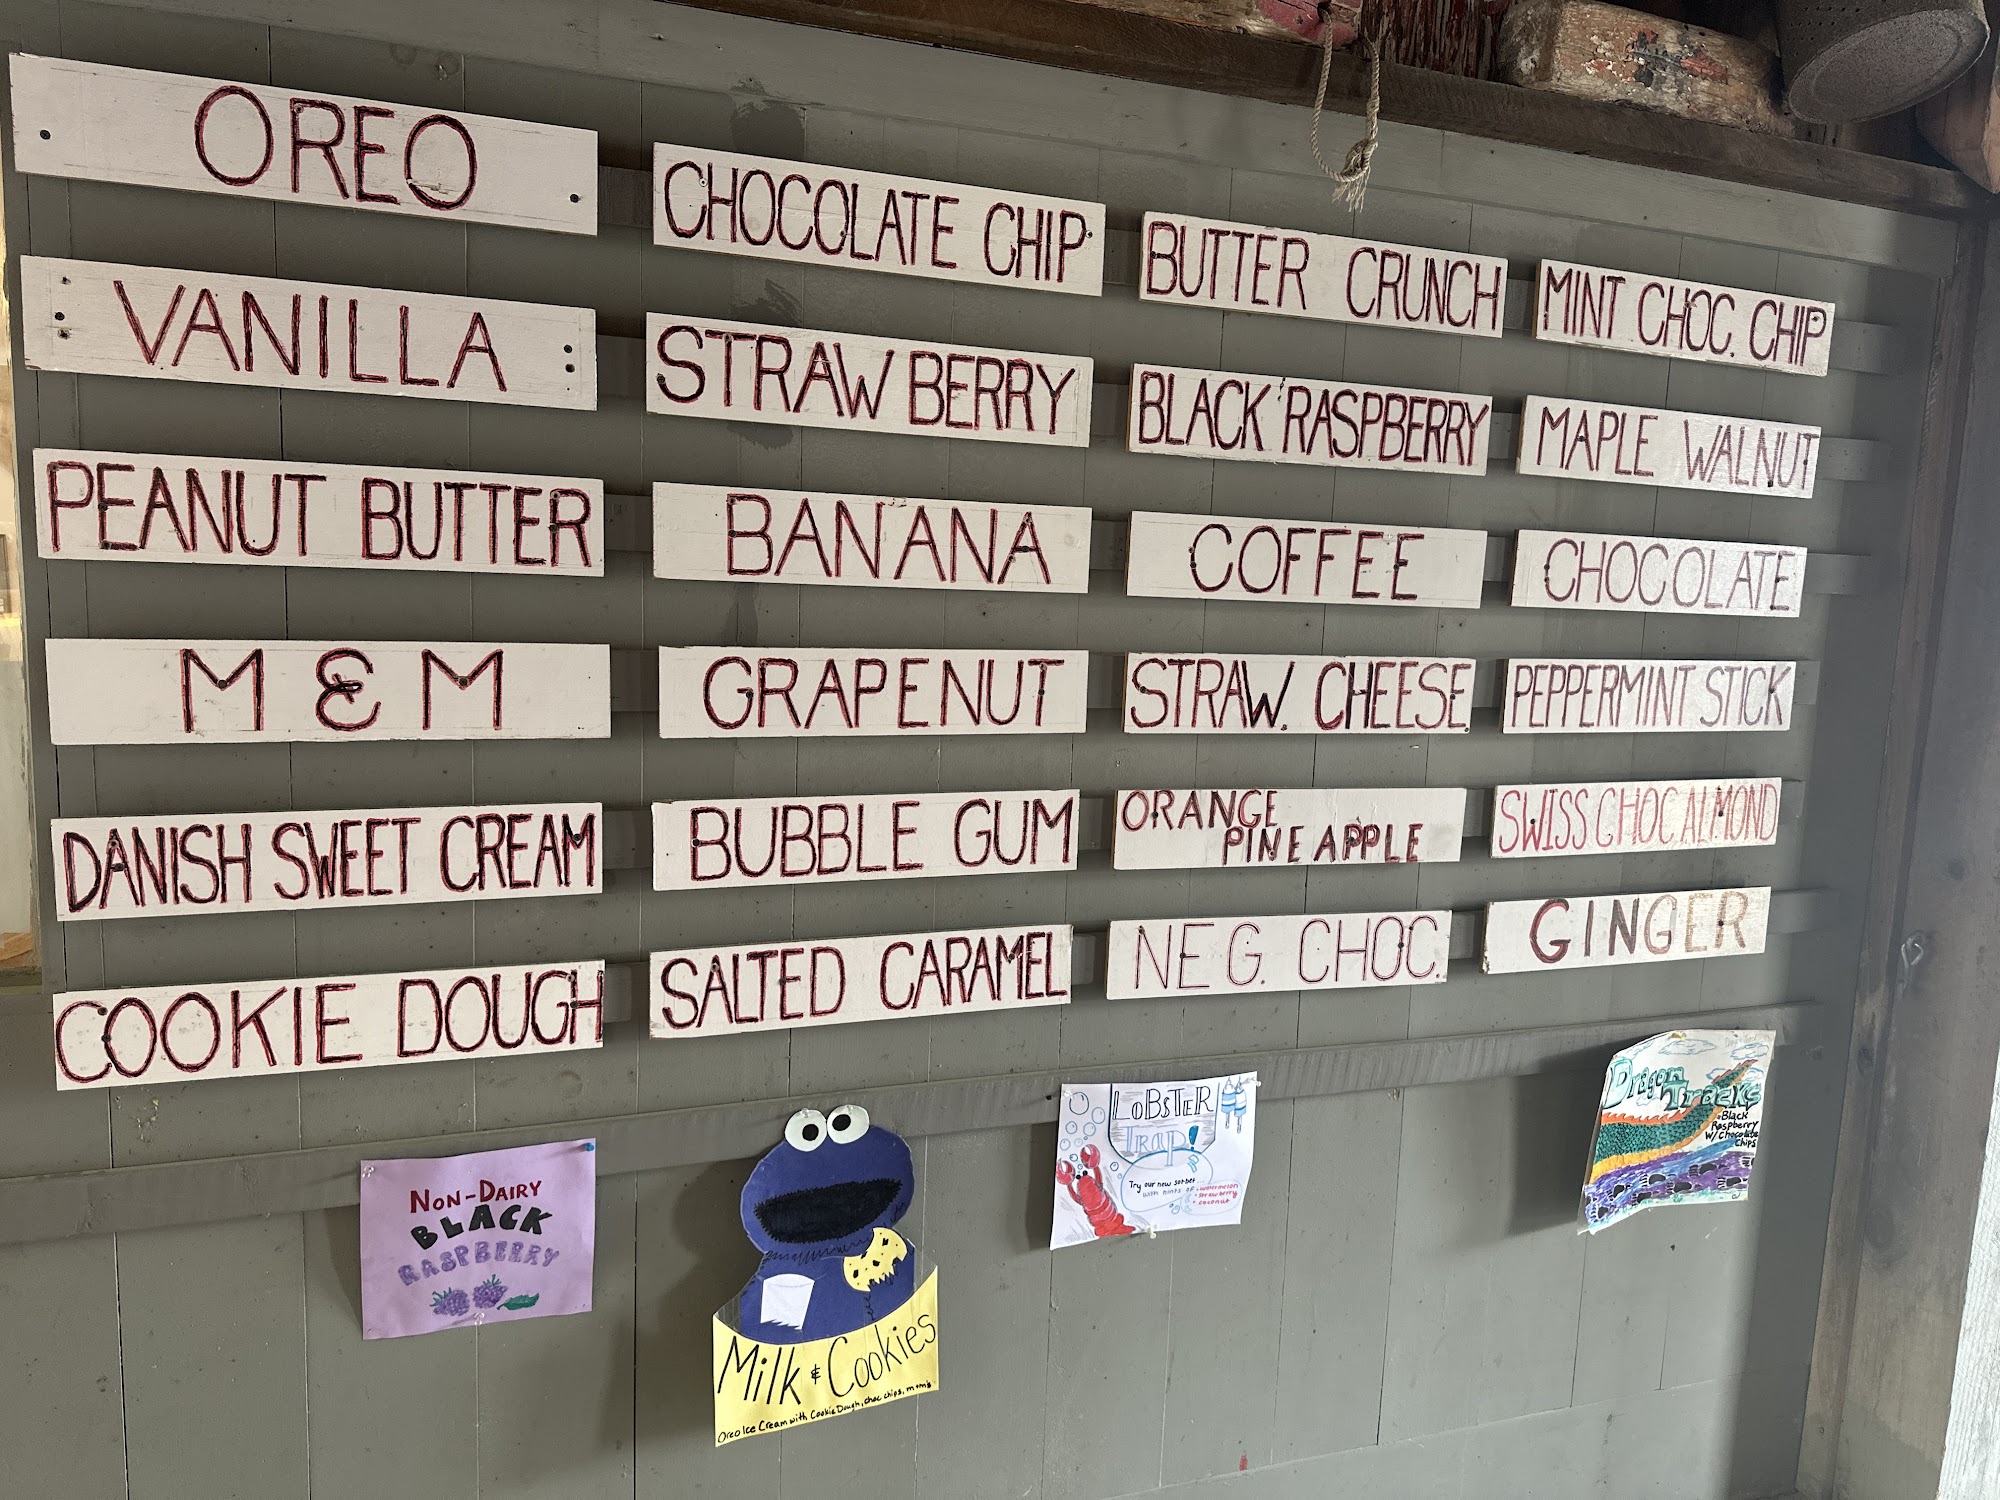 OREO
VANILLA
PEANUT BUTTER
M & M
DANISH SWEET CREAM
COOKIE DOUGH
CHOCOLATE CHIP
STRAWBERRY
BANANA
GRAPENUT
BUBBLE GUM
SALTED CARAMEL
BUTTER CRUNCH
BLACK RASPBERRY
COFFEE
STRAW. CHEESE
ORANGE
PINEAPPLE
NEG. CHOC.
MINT CHOC. CHIP
MAPLE WALNUT
CHOCOLATE
PEPPERMINT STICK
SWISS CHOC ALMOND
GINGER
NON-DAIRY
BLACK
RASPBERRY
Milk & Cookies
Oreo Ice Cream with Cookie Dough, choc chips, m+m's
LOBSTER
TRAP!
Try our new sorbet
with hints of • watermelon
• strawberry
• coconut
Dragon
Tracks
Black
Raspberry
w/ Chocolate
Chips